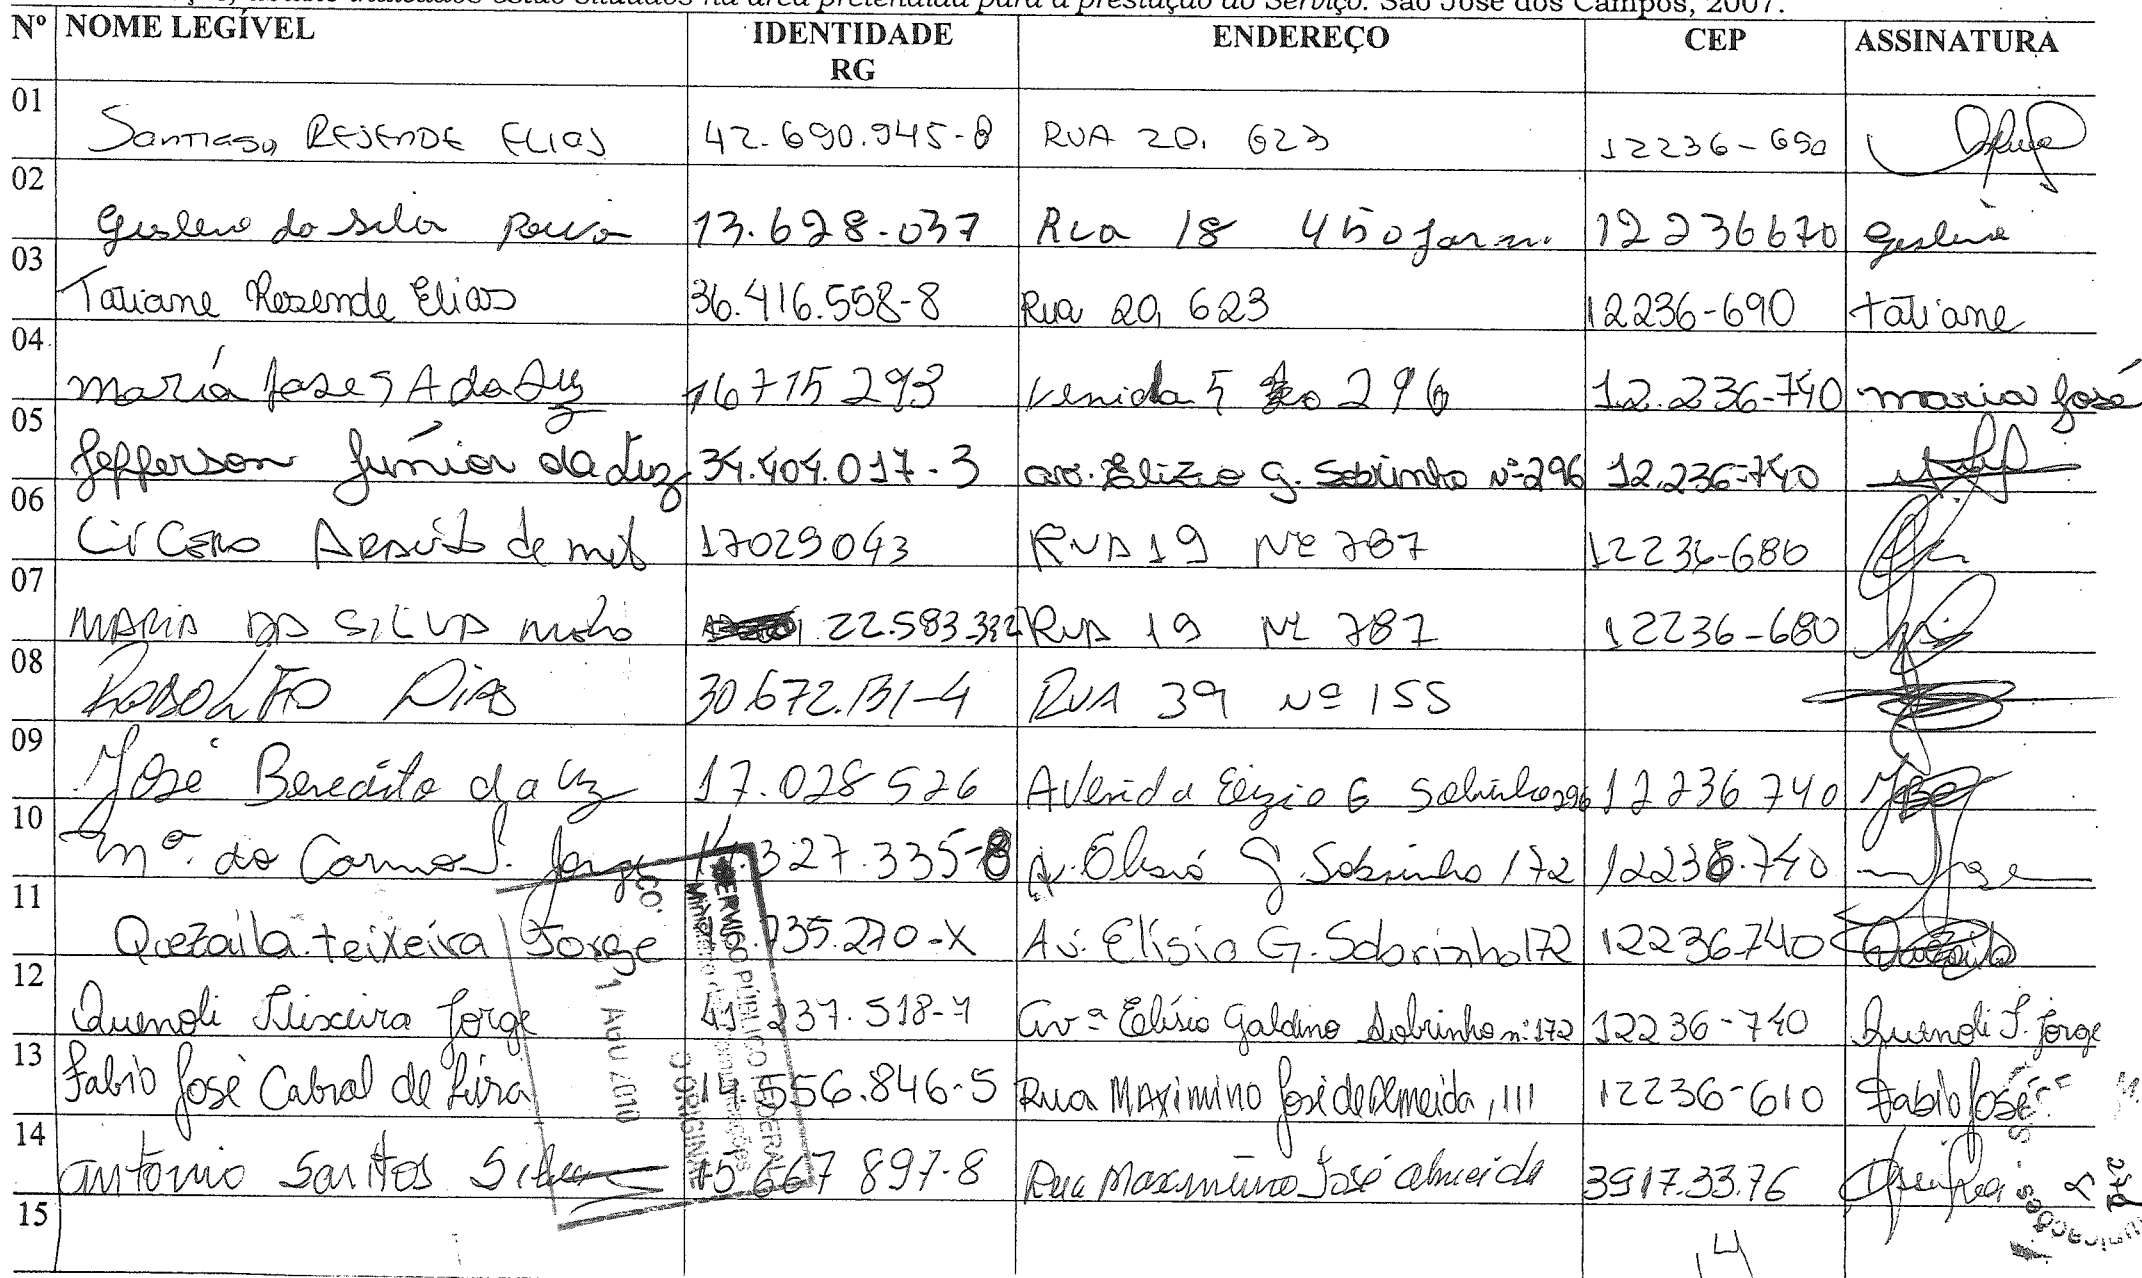 estão situados na área pretendida para a prestação do Serviço. São José dos Campos, 2007.
Nº NOME LEGÍVEL IDENTIDADE RG ENDEREÇO CEP ASSINATURA
01 Santiago RESENDE ELIAS 42.690.945-8 RUA 20, 623 12236-690
02 da Silva 13.628.037 Rua 18 450 12236670 Gislene
03 Tatiane Resende Elias 36.416.558-8 Rua 20, 623 12236-690 Tatiane
04 maria A da Luz 16715293 venida 5 296 12.236-740 maria José
05 Jefferson Júnior da Luz 34.404.017-3 av. Elizio G. Sobrinho Nº 296 12.236-740
06 Cicero de 17029043 RUA 19 Nº 787 12236-680
07 MARIA DA SILVA 22.583.332 RUA 19 Nº 787 12236-680
08 RODOLFO DIAS 30.672.131-4 RUA 39 Nº 155
09 José Benedito da Luz 17.028 526 Avenida Elizio G Sobrinho 296 12236 740 José
10 Mª. do Carmo S. Jorge .327.335-8 Av. G. Sobrinho 172 12236.740
11 Quezaila teixeira Jorge .735.270-X Av. Elísio G. Sobrinho 172 12236740 Quezaila
12 Quenoli Teixeira Jorge 41. 237.518-7 Avª Elísio Galdino Sobrinho nº 172 12236-740 Quenoli T. Jorge
13 Fabio José Cabral de Lira 14.556.846-5 Rua MAXIMINO José de Almeida, 111 12236-610 Fabio José
14 antonio Santos Silva 15 667 897-8 Rua Maximino José almeida 3917.33.76
15
SERVIÇO PÚBLICO FEDERAL
O ORIGINAL
AGO 2010
14